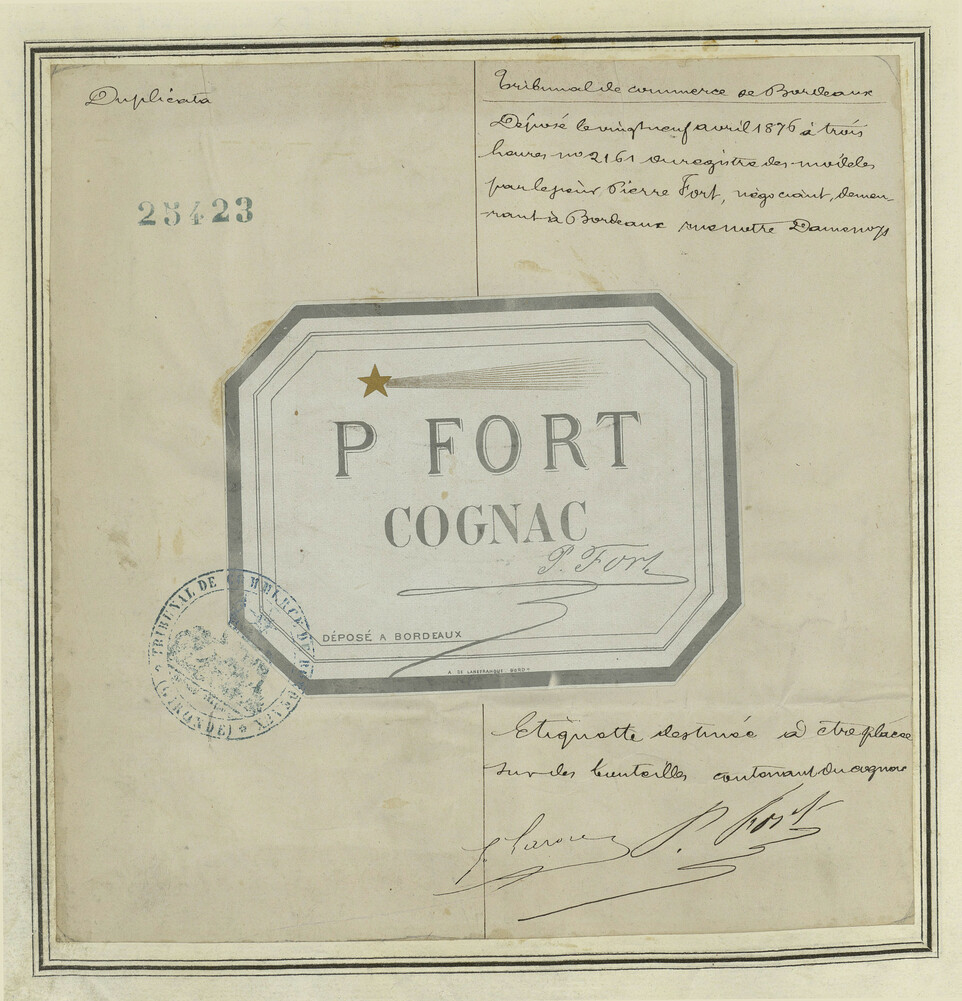 Duplicata
25423
Tribunal de commerce de Bordeaux
Déposé le vingt neuf avril 1876 à trois
heures no 2161 du registre des modèles
par le sieur Pierre Fort, négociant, demeu-
rant à Bordeaux rue notre Dame
P FORT
COGNAC
P. Fort
DÉPOSÉ A BORDEAUX
TRIBUNAL DE COMMERCE DE BORDEAUX
(GIRONDE)
Etiquette destinée à être placée
sur des bouteilles contenant du cognac
P. Fort